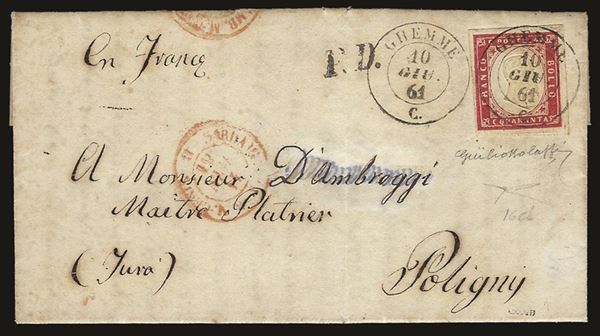 En France
P.D.
GHEMME
10
GIU.
61
C.
GHEMME
10
GIU.
61
C.
FRANCO
BOLLO
C. QUARANTA
SARDAIG.
A Monsieur D'Ambroggi
Maitre Platrier
(Jura)
Poligny